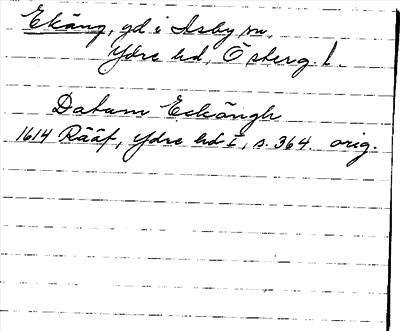 Ekäng, gd i Asby sn,
Ydre hd, Österg. l.
Datum Eckängh
1614 Rääf, Ydre hd I, s. 364. orig.